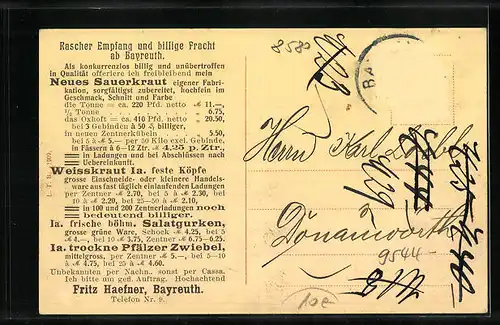 Rascher Empfang und billige Fracht
ab Bayreuth.
Als konkurrenzlos billig und unübertroffen
in Qualität offeriere ich freibleibend mein
Neues Sauerkraut eigener Fabri-
kation, sorgfältigst zubereitet, hochfein im
Geschmack, Schnitt und Farbe
die Tonne = ca. 220 Pfd. netto ℳ 11.—,
½ Tonne „ 6.75,
das Oxhoft = ca. 410 Pfd. netto „ 20.50,
bei 3 Gebinden à 50 ₰ billiger,
in neuen Zentnerkübeln „ 5.50,
bei 5 à ℳ 5.— per 50 Kilo exkl. Gebinde,
in Fässern à 6—12 Ztr. ℳ 4.25 p. Ztr.,
in Ladungen und bei Abschlüssen nach
Uebereinkunft.
Weisskraut Ia. feste Köpfe
grosse Einschneide- oder kleinere Handels-
ware aus fast täglich einlaufenden Ladungen
per Zentner ℳ 2.70, bei 5 à ℳ 2.50, bei
10 à ℳ 2.20, bei 25—50 à ℳ 2.10,
in 100 und 200 Zentnerladungen noch
bedeutend billiger.
Ia. frische böhm. Salatgurken,
grosse grüne Ware, Schock ℳ 4.25, bei 5
à ℳ 4.—, bei 10 ℳ 3.75, Zentner ℳ 6.75—6.25.
Ia. trockne Pfälzer Zwiebel,
mittelgross, per Zentner ℳ 5.—, bei 5—10
à ℳ 4.75, bei 25 à ℳ 4.60.
Unbekannten per Nachn. sonst per Cassa.
Ich bitte um gef. Auftrag. Hochachtend
Fritz Haefner, Bayreuth.
Telefon Nr. 9.
8580
BA
Herrn Karl
Donauwörth
9544
10€